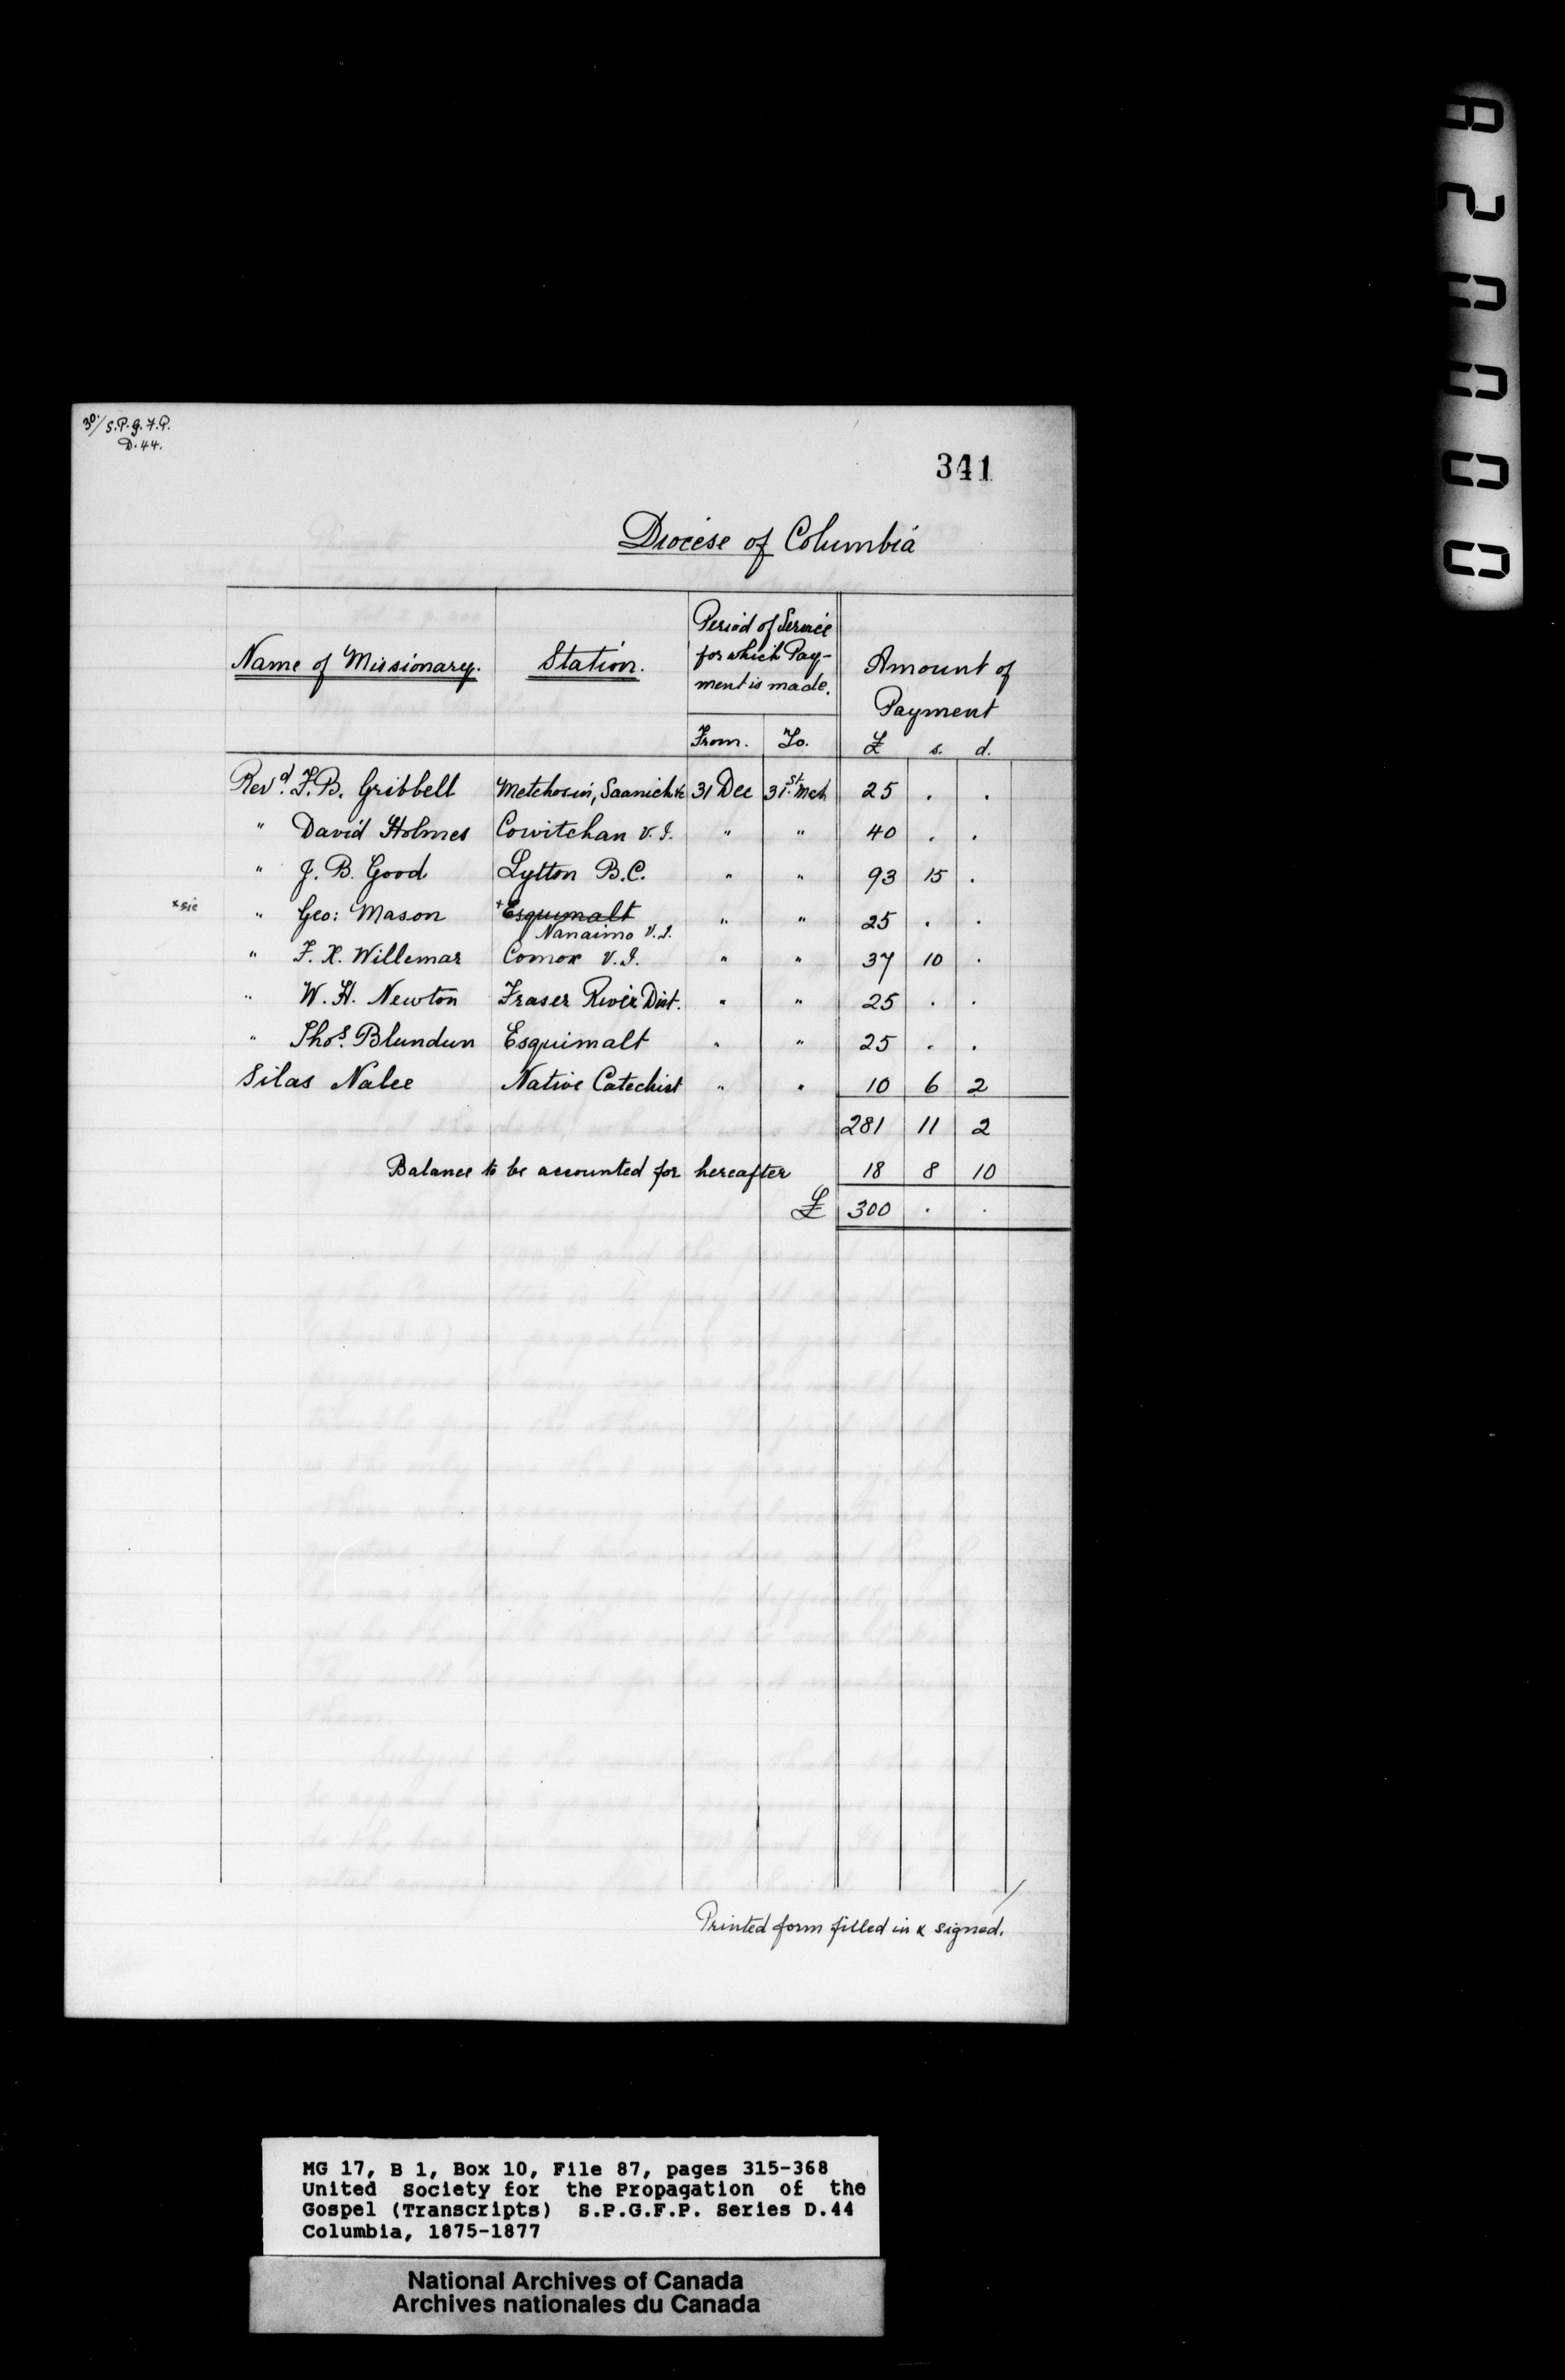 30/ S.P.G.F.P.
D.44.
341
Diocese of Columbia
Name of Missionary. Station. Period of Service for which Pay-ment is made. Amount of Payment
From. To. £ s. d.
Revd. F.B. Gribbell Metchosin, Saanich & 31 Dec 31st. Mch 25 . .
" David Holmes Cowitchan V.I. " " 40 . .
" J. B. Good Lytton B.C. " " 93 15 .
xsic " Geo: Mason +Esquimalt " " 25 . .
Nanaimo V.I.
" F. X. Willemar Comox V.I. " " 37 10 .
" W. H. Newton Fraser River Dist. " " 25 . .
" Thos. Blundun Esquimalt " " 25 . .
Silas Nalee Native Catechist " " 10 6 2
281 11 2
Balance to be accounted for hereafter 18 8 10
£ 300 . .
Printed form filled in & signed.
MG 17, B 1, Box 10, File 87, pages 315-368
United Society for the Propagation of the
Gospel (Transcripts) S.P.G.F.P. Series D.44
Columbia, 1875-1877
National Archives of Canada
Archives nationales du Canada